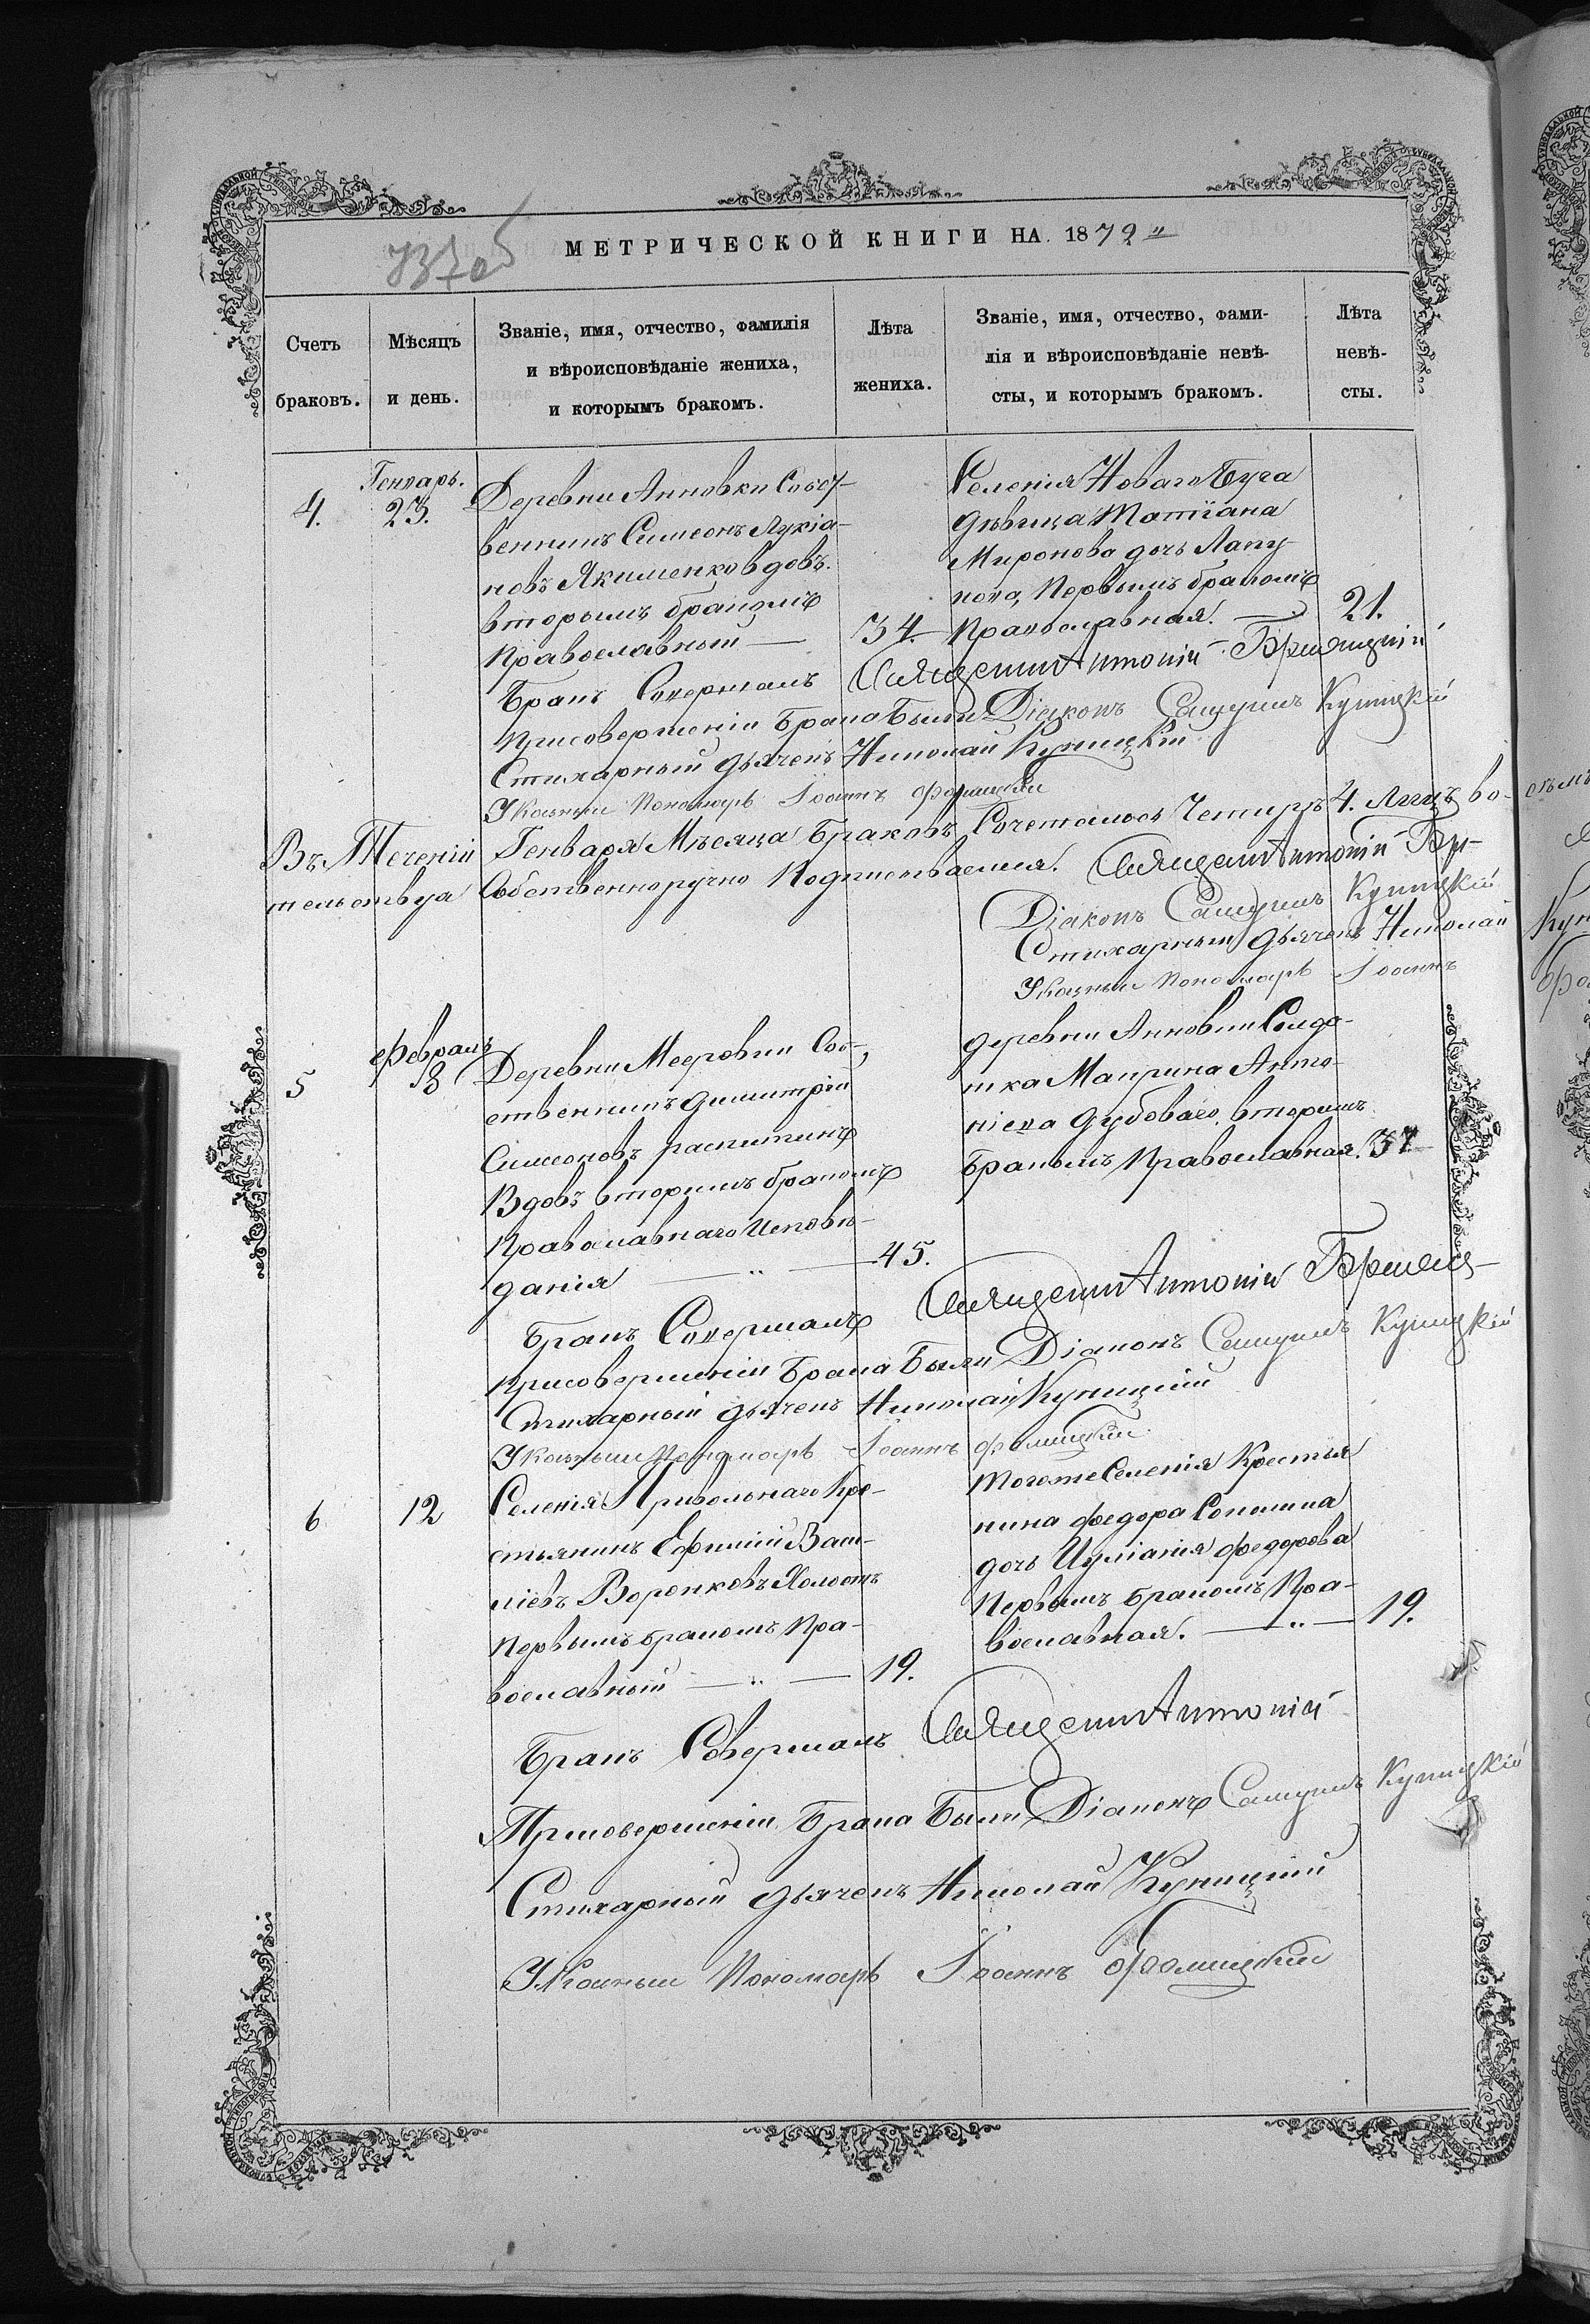 МЕТРИЧЕСКОЙ КНИГИ НА 1872
Счетъ браковъ.
Мѣсяцъ и день.
Званіе, имя, отчество, фамилія
и вѣроисповѣданіе жениха,
и которымъ бракомъ.
Лѣта жениха.
Званіе, имя, отчество, фами-
лія и вѣроисповѣданіе невѣ-
сты, и которымъ бракомъ.
Лѣта невѣ-
сты.
4.
Генварь.
23.
Деревни Анновки Собст-
венникъ Симеонъ Лукіа-
новъ Якименковъ вдовъ
вторымъ бракомъ
Православный — 34.
Селенія Новаго Буга
Дѣвица Татіана
Миронова дочь Лапу
нова, Первымъ бракомъ
Православная. — 21.
Бракъ Совершалъ Священникъ Антоній
Присовершеніи Брака Были Діаконъ Самуилъ Куницкій
Стихарный Дьячекъ Николай Куницкій
Указный Пономарь Іоаннъ
Въ Теченіи Генваря Мѣсяца Браковъ Сочеталось Четыре 4. Лицъ во-
Собственноручно Подписываемся. Священникъ Антоній
Діаконъ Самуилъ Куницкій
Стихарный Дьячекъ Николай
Указный Пономарь Іоаннъ
5
Февраль
8
Деревни Мееровки Соб-
ственникъ Димитрій
Симеоновъ
Вдовъ вторымъ бракомъ
Православнаго Исповѣ-
данія — 45.
Деревни Анновки Солда-
тка Маирина Анто-
ніева Дубоваго, вторымъ
Бракомъ Православная. 37
Бракъ Совершалъ Священникъ Антоній
Присовершеніи Брака Были Діаконъ Самуилъ Куницкій
Стихарный Дьячекъ Николай Куницкій
Указный Пономарь Іоаннъ
6
12
Селенія Привольнаго Кре-
стьянинъ Ефимій Васи-
ліевъ Воронковъ Холостъ
Первымъ бракомъ Пра-
вославный — 19.
Тогоже Селенія Крестья
нина Федора
дочь Иуліанія Федорова
Первымъ Бракомъ Пра-
вославная. — 19.
Бракъ Совершалъ Священникъ Антоній
Присовершеніи Брака Были Діаконъ Самуилъ Куницкій
Стихарный Дьячекъ Николай Куницкій
Указный Пономарь Іоаннъ